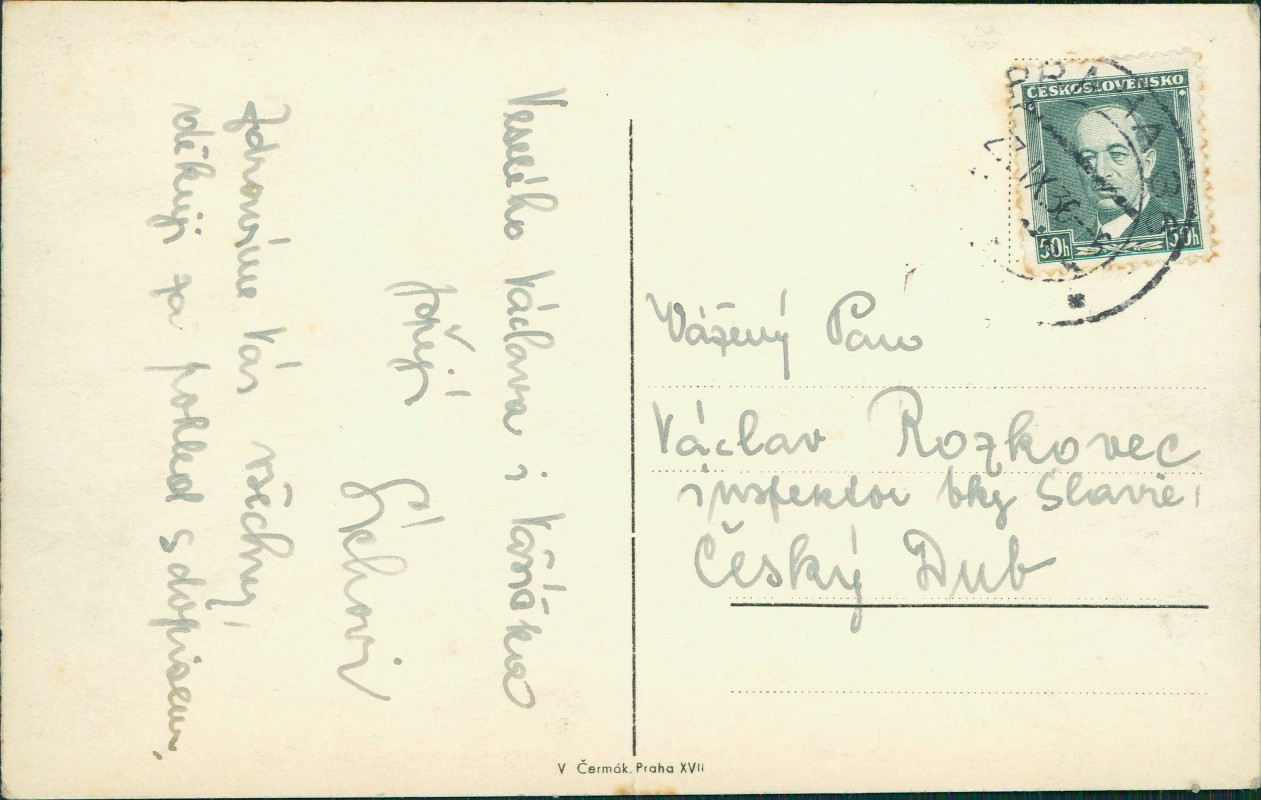 Veselého Václava i Vašíčka
přejí
Číchovi
Zdravíme Vás všechny
děkuji za pohled s dopisem,
ČESKOSLOVENSKO
50h 50h
PRAHA
IX 36
Vážený Pan
Václav Rozkovec
inspektor bky Slavie,
Český Dub
V Čermák, Praha XVII